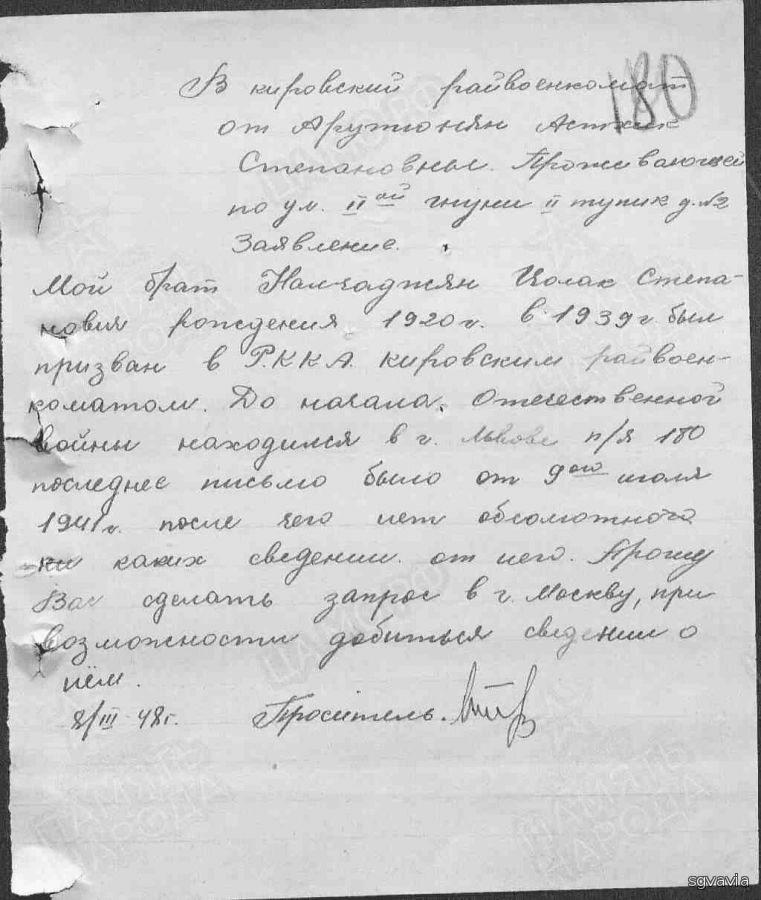 180
В кировский райвоенкомат
от Арутюнян Астхик
Степановны. Проживающей
по ул. II ой гнуни II тупик д. №2
Заявление.
Мой брат Налчаджян Цолак Степа-
нович рождения 1920 г. в 1939 г. был
призван в Р.К.К.А. кировским райвоен-
коматом. До начала Отечественной
войны находился в г. Львове п/я 180
последнее письмо было от 9ого июля
1941 г. после чего нет обсолютного
ни каких сведении от него. Прошу
Вас сделать запрос в г. Москву, при
возможности добиться сведении о
нём.
8/III 48 г. Проситель.
sgvavia